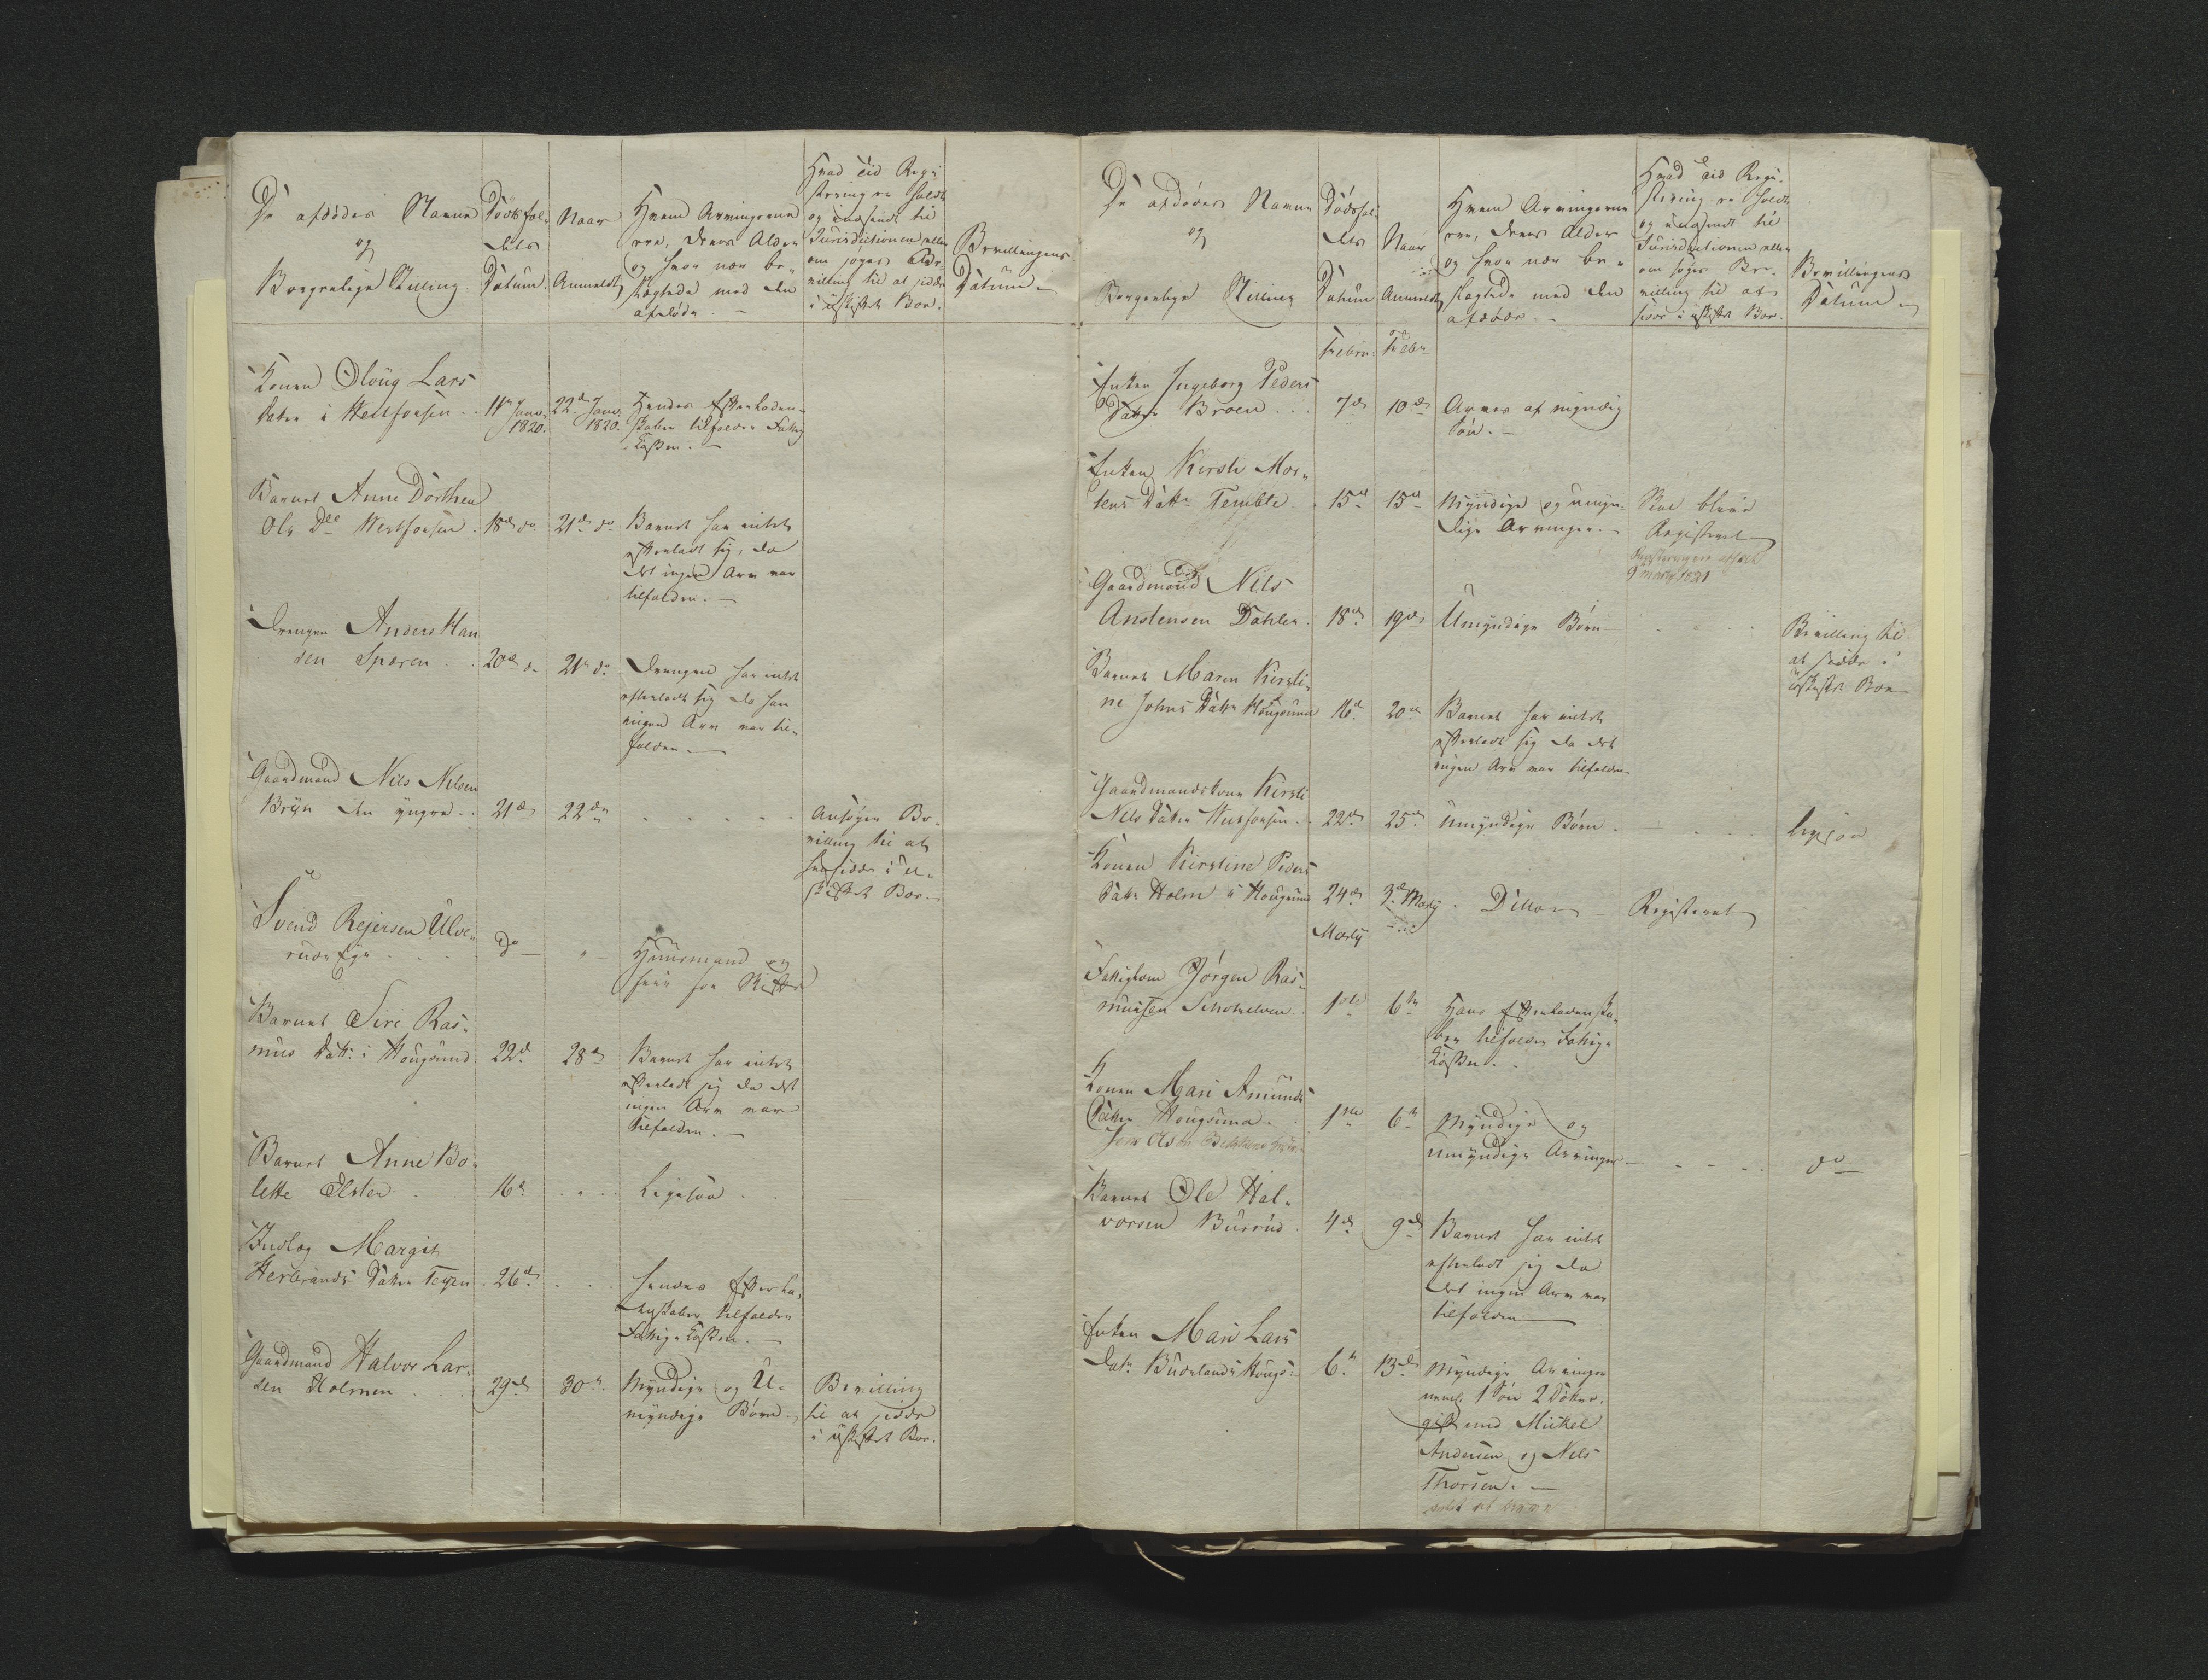 De afdødes Navne
og
Borgerlige Stilling.
Dødsfal-
dets
Datum.
Naar
Anmeldt
Hvem Arvingerne
ere, deres Alder
og hvor nær be-
slægtede med den
afdøde. -
Hvad tid Regi-
streringen holdt
og indsendt til
Jurisdictionen eller
om søges Be-
villing til at sidde
i uskiftet Boe.
Bevillingens
Datum.
Konen Oloug Lars
Datter i Vestfossen
11te Janv.
1820.
22de Janv.
1820.
Hendes Efterladen-
skaber tilfalder Fattig
Kassen. -
Barnet Anne Dorthea
Ols Dtr Vestfossen
18de do
21de do
Barnet har intet
efterladt sig, da
det ingen Arv var
tilfalden. -
Drengen Anders Han
sen Speren
20de do
21de do
Drengen har intet
efterladt sig da han
ingen Arv var til-
falden. -
Gaardmand Nils Nilsen
Bryn den yngre
21de
22de
Ansøger Be-
villing til at
hensidde i u-
skiftet Boe.
Svend Rejersen Ulve-
rud Ege
do
"
Huusmand og
Barnet Siri Ras-
mus Datt: i Hougsund
22de
28de
Barnet har intet
efterladt sig da det
ingen Arv var
tilfalden. -
Barnet Anne Bo-
lette Elster
16de
Ligesaa
Indlæg Margit
Herbrands Datter Teigen
26de
hendes Efterla-
denskaber tilfalder
Fattig Kassen. -
Gaardmand Halvor Lar-
sen Holmen
29de
30te
Myndige og U-
myndige Børn.
Bevilling
til at sidde
i uskiftet Boe.
De afdødes Navne
og
Borgerlige Stilling
Dødsfal-
dets
Datum
Naar
Anmeldt
Hvem Arvingerne
ere, deres Alder
og hvor nær be-
slægtede med den
afdøde. -
Hvad tid Regi-
strering er holdt
og indsendt til
Jurisdictionen eller
om søges Be-
villing til at
sidde i uskiftet Boe.
Bevillingens
Datum
Febru. Febr
Enken Ingeborg Peders
Datter Broen
7de
10de
Arves af myndig
Søn. -
Enken Kirsti Mor-
tens Datt: Temble
15de
15de
Myndige og umyn-
dige Arvinger.
Skal blive
Registeret
9 Marty 1821
Gaardmand Nils
Anstensen Dahlen
18de
19de
Umyndige Børn
Bevilling til
at sidde i
uskiftet Boe
Barnet Maren Kirsti-
ne Johns Datt: Hougsund
16de
20de
Barnet har intet
efterladt sig da det
ingen Arv var tilfalden.
Gaardmandskone Kirsti
Nils Datter Vestfossen
22de
25de
Umyndige Børn
ligesaa
Konen Kirstine Peders
Datt: Holm i Hougsund
24de
3de Marty
Ditto
Registeret
Marty
Fattiglem Jørgen Ras-
mussen
1ste
6te
Hans Efterladenska-
ber tilfalder Fattig-
Kassen.
Konen Mari Amunds
Datter Hougsund
1ste
6te
Myndige og
umyndige Arvinger
do
Barnet Ole Hal-
vorsen Burud
4de
9de
Barnet har intet
efterladt sig da
det ingen Arv var
tilfalden
Enken Mari Lars
Datr
6te
13de
Myndige Arvinger
neml. 1 Søn 2 Døttre
gift med Mickel
Andersen og Nils
Thorsen. -